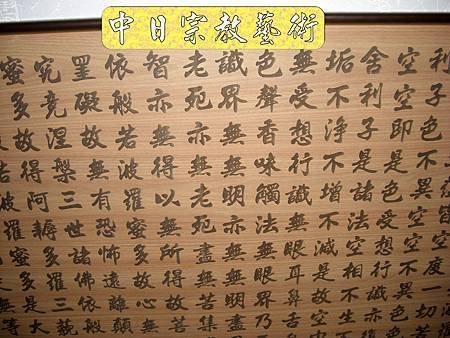 中日宗教藝術
皆空度一切
利子色不異空空不異色
空空即是色受想行不識亦
舍利子是諸法空相不生
垢不淨不增不減是故空
無受想行識無眼耳鼻舌
色聲香味觸法無眼界乃
識界無無明亦無無明盡
老死亦無老死盡無苦集
智亦無得以無所得故菩
依般若波羅蜜多故心無
罣礙故無有恐怖遠離顛
究竟涅槃三世諸佛依般
蜜多故得阿耨多羅三藐
若波羅蜜多是大
無等